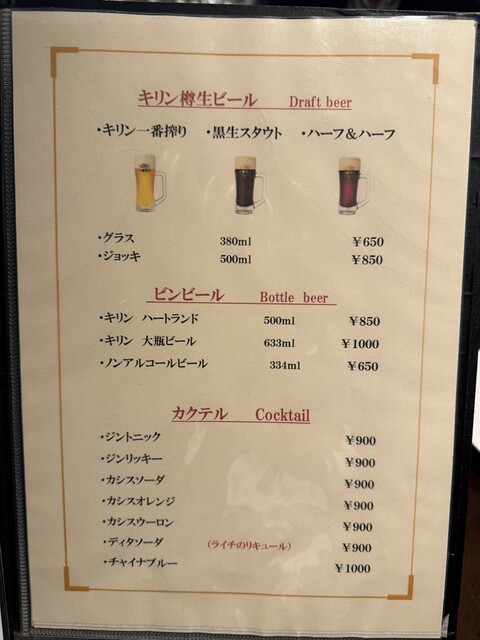 キリン樽生ビール Draft beer
・キリン一番搾り ・黒生スタウト ・ハーフ＆ハーフ
・グラス 380ml ￥650
・ジョッキ 500ml ￥850
ビンビール Bottle beer
・キリン ハートランド 500ml ￥850
・キリン 大瓶ビール 633ml ￥1000
・ノンアルコールビール 334ml ￥650
カクテル Cocktail
・ジントニック ￥900
・ジンリッキー ￥900
・カシスソーダ ￥900
・カシスオレンジ ￥900
・カシスウーロン ￥900
・ディタソーダ （ライチのリキュール） ￥900
・チャイナブルー ￥1000